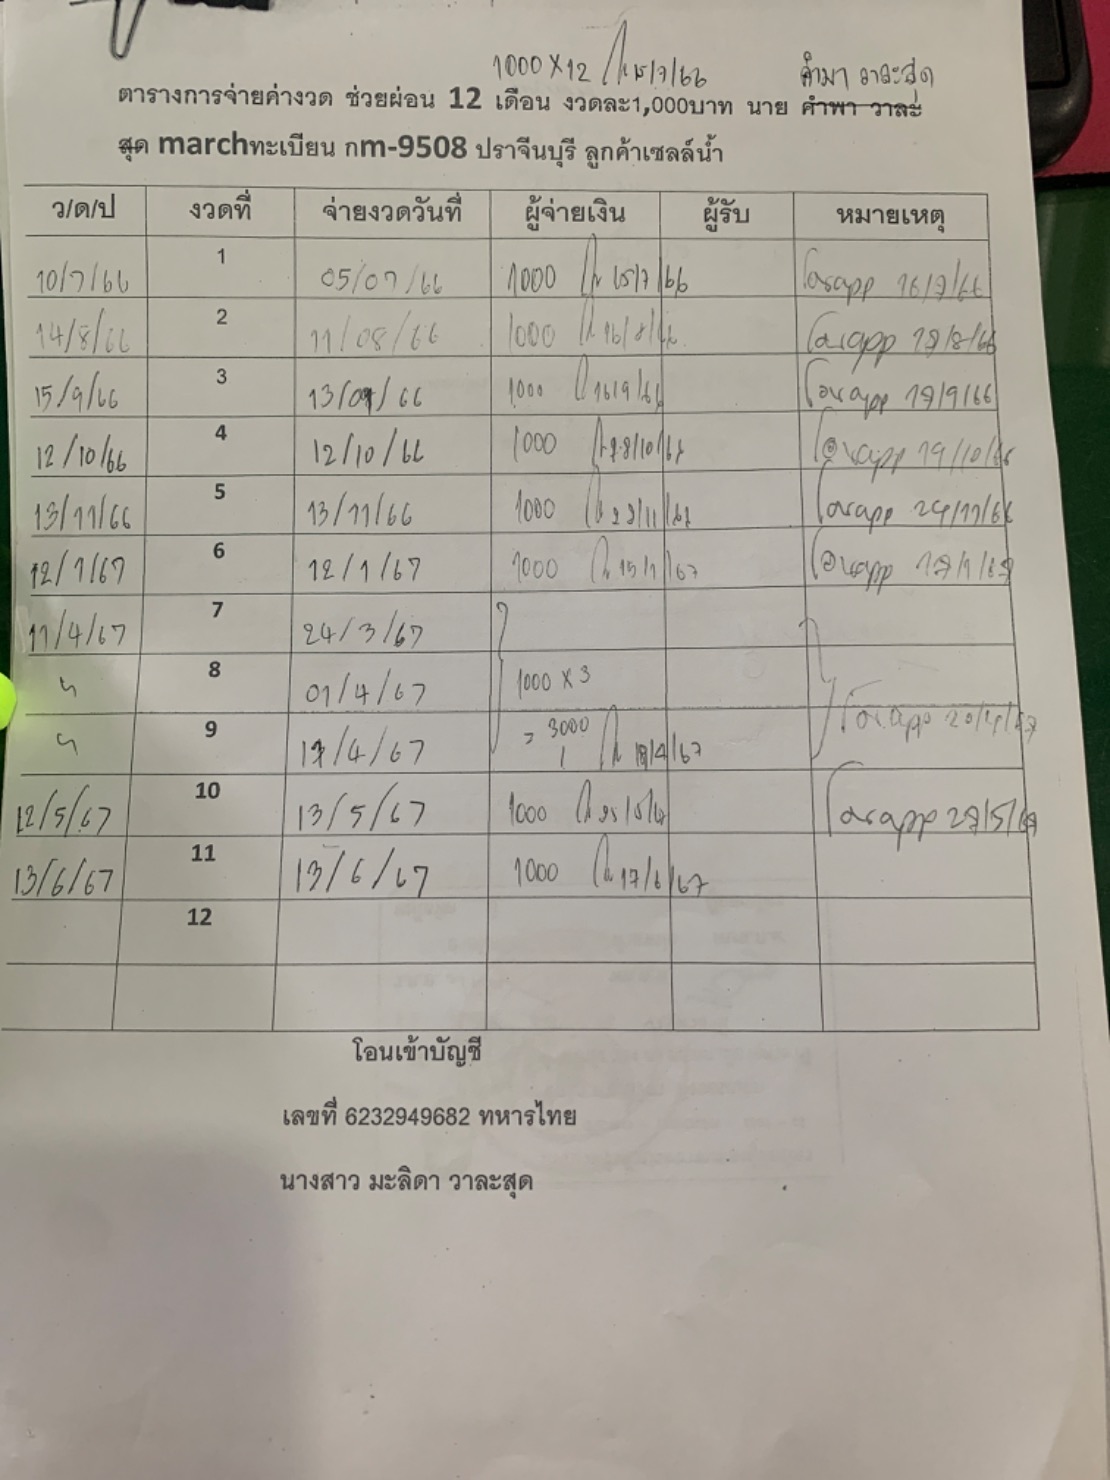 1000 X 12 15/7/66 คำมา วาละสุด
ตารางการจ่ายค่างวด ช่วยผ่อน 12 เดือน งวดละ1,000บาท นาย คำพา วาละ
สุด marchทะเบียน กm-9508 ปราจีนบุรี ลูกค้าเซลล์น้ำ
ว/ด/ป งวดที่ จ่ายงวดวันที่ ผู้จ่ายเงิน ผู้รับ หมายเหตุ
10/7/66 1 05/07/66 1000 15/7/66 โอนapp 16/7/66
14/8/66 2 11/08/66 1000 16/8/66 โอนapp 17/8/66
15/9/66 3 13/09/66 1000 16/9/66 โอนapp 17/9/66
12/10/66 4 12/10/66 1000 โอนapp 19/10/66
13/11/66 5 13/11/66 1000 โอนapp 24/11/66
12/1/67 6 12/1/67 1000 15/1/67 โอนapp 17/1/67
11/4/67 7 24/3/67
8 01/4/67 1000 X 3
9 /4/67 = 3000 18/4/67 โอนapp 20/4/67
12/5/67 10 13/5/67 1000 25/5/67 โอนapp 27/5/67
13/6/67 11 13/6/67 1000 17/6/67
12
โอนเข้าบัญชี
เลขที่ 6232949682 ทหารไทย
นางสาว มะลิดา วาละสุด